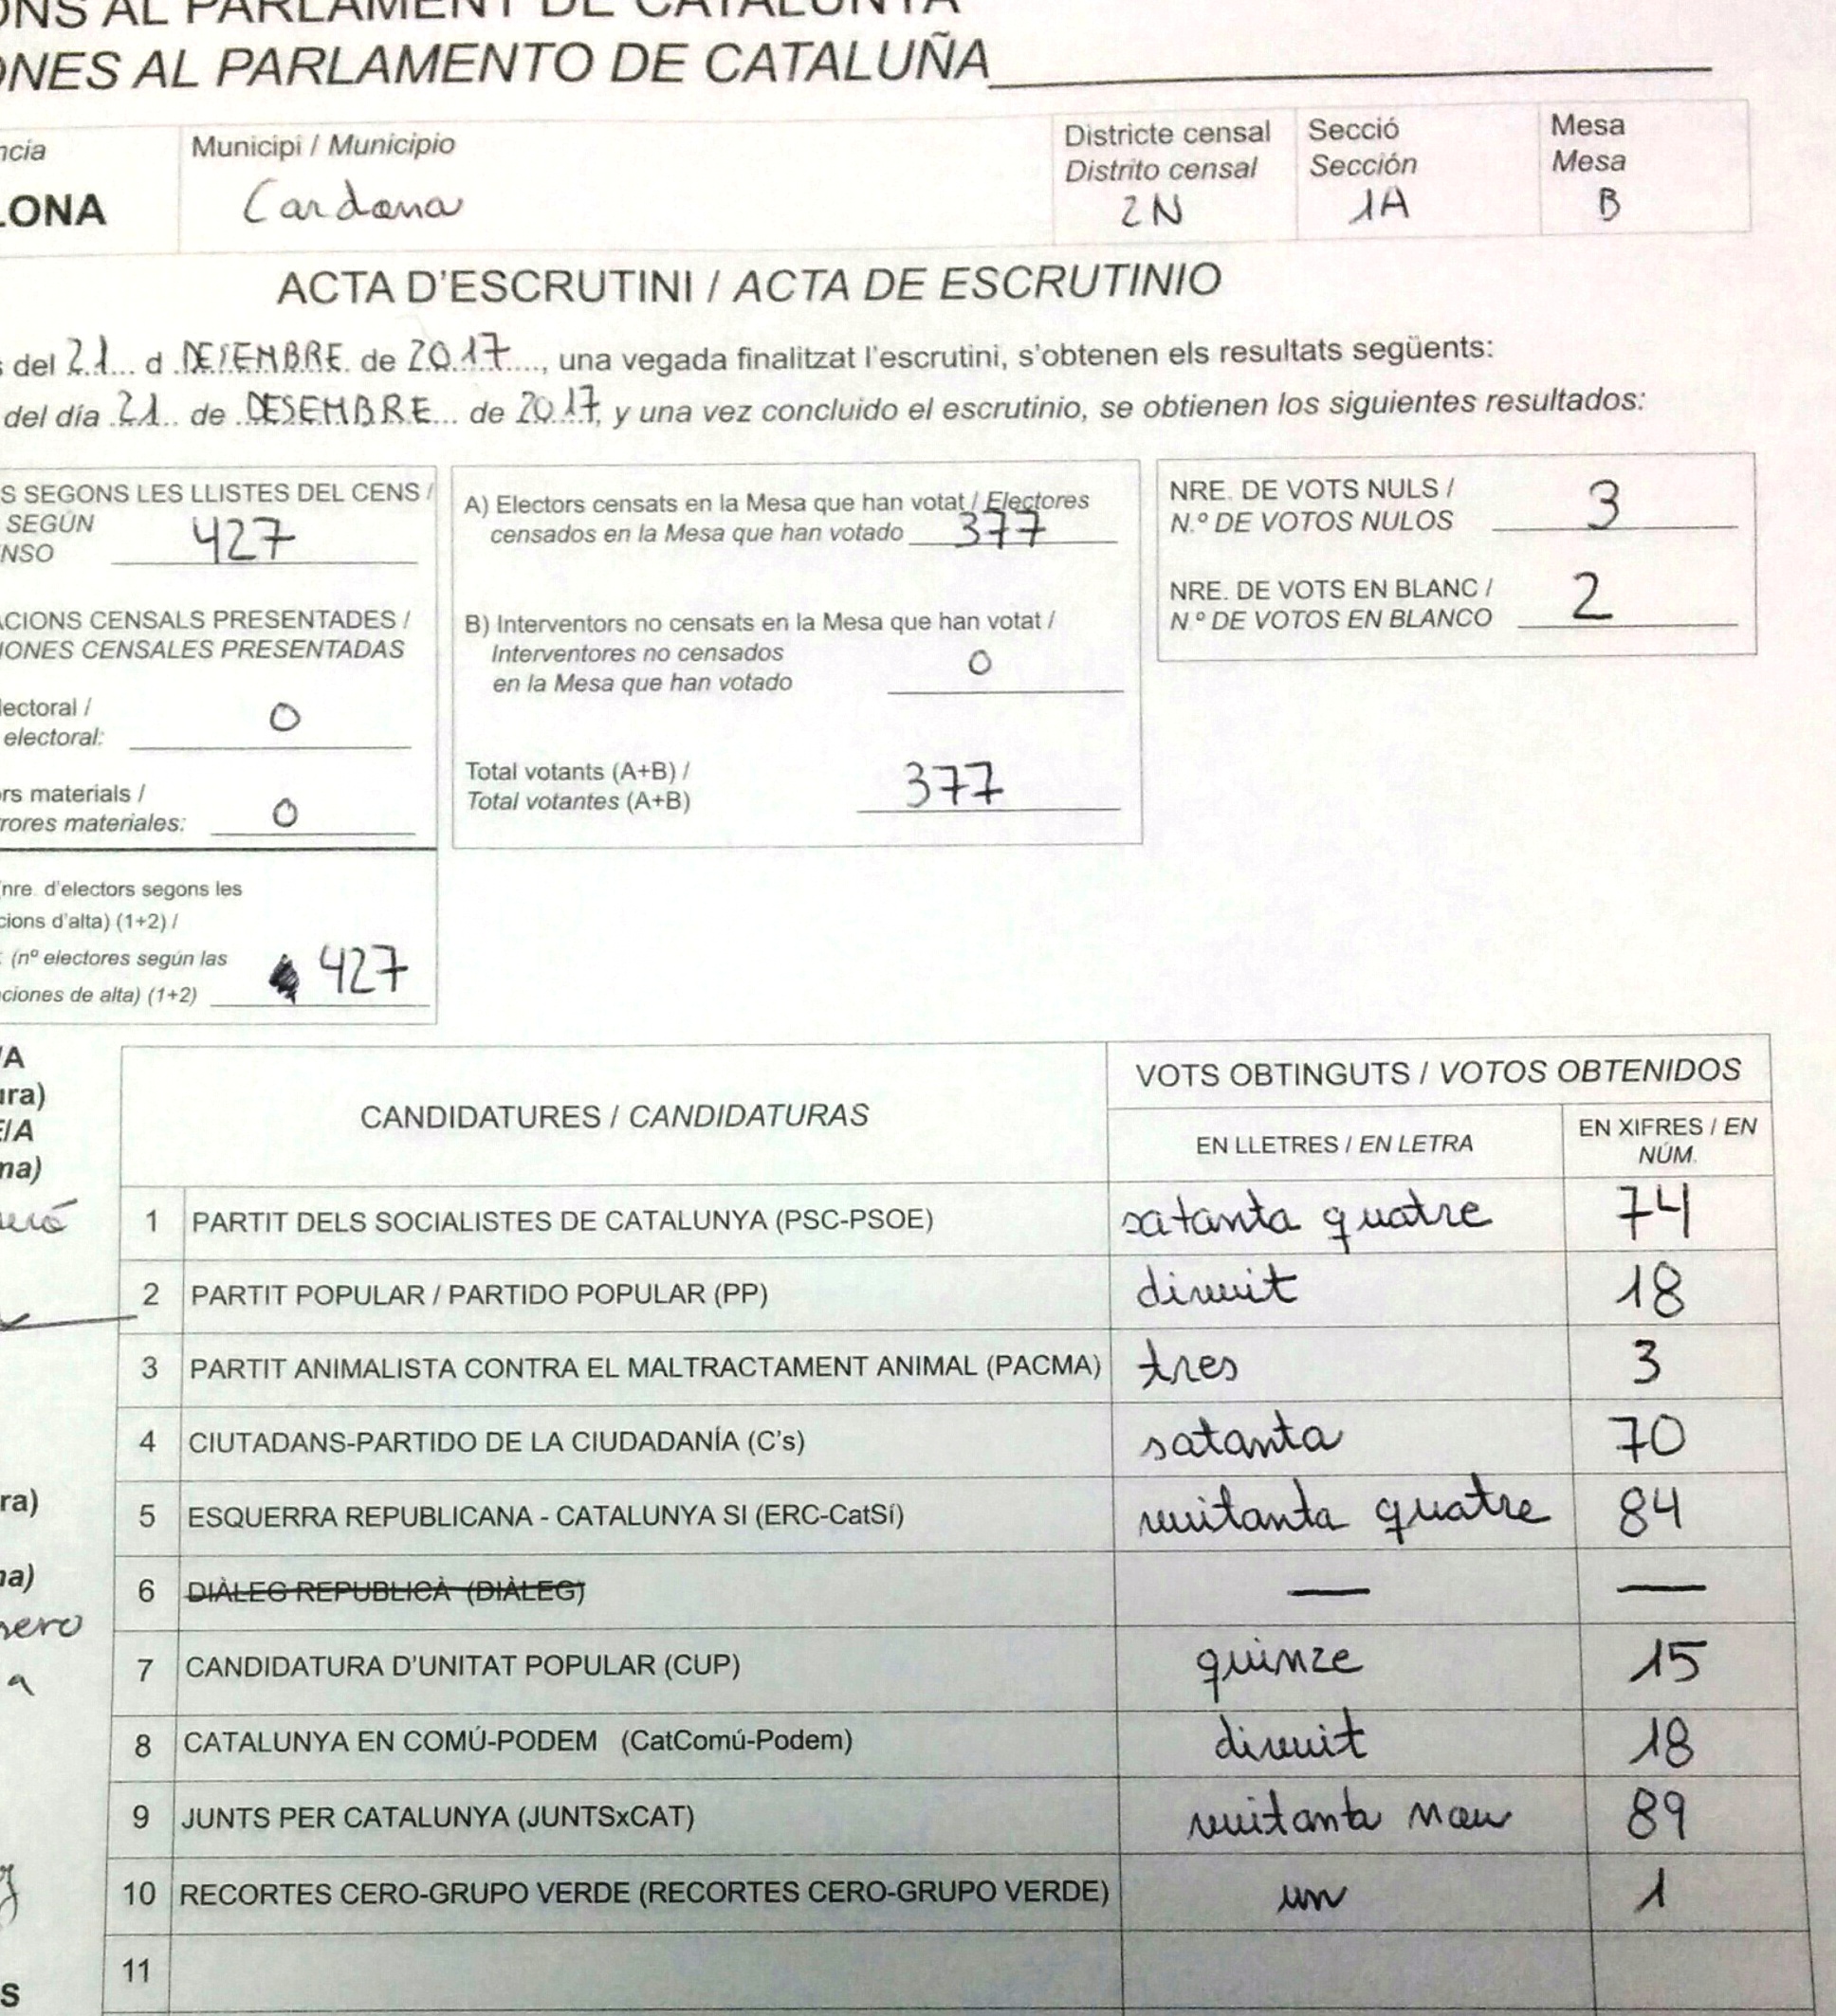 ONS AL PARLAMENT DE CATALUNYA
ONES AL PARLAMENTO DE CATALUÑA
ncia
LONA
Municipi / Municipio
Cardona
Districte censal
Distrito censal
2N
Secció
Sección
1A
Mesa
Mesa
B
ACTA D'ESCRUTINI / ACTA DE ESCRUTINIO
s del 21 d DESEMBRE de 2017, una vegada finalitzat l'escrutini, s'obtenen els resultats següents:
del día 21 de DESEMBRE de 2017, y una vez concluido el escrutinio, se obtienen los siguientes resultados:
S SEGONS LES LLISTES DEL CENS /
SEGÚN
NSO 427
ACIONS CENSALS PRESENTADES /
IONES CENSALES PRESENTADAS
lectoral /
electoral: 0
rs materials /
rores materiales: 0
(nre. d'electors segons les
cions d'alta) (1+2) /
: (nº electores según las
ciones de alta) (1+2) 427
A) Electors censats en la Mesa que han votat / Electores
censados en la Mesa que han votado 377
B) Interventors no censats en la Mesa que han votat /
Interventores no censados
en la Mesa que han votado 0
Total votants (A+B) /
Total votantes (A+B) 377
NRE. DE VOTS NULS /
N.º DE VOTOS NULOS 3
NRE. DE VOTS EN BLANC /
N.º DE VOTOS EN BLANCO 2
/A
ura)
E/A
ma)
ra)
na)
nero
a
S
CANDIDATURES / CANDIDATURAS
VOTS OBTINGUTS / VOTOS OBTENIDOS
EN LLETRES / EN LETRA
EN XIFRES / EN
NÚM.
1 PARTIT DELS SOCIALISTES DE CATALUNYA (PSC-PSOE) satanta quatre 74
2 PARTIT POPULAR / PARTIDO POPULAR (PP) divuit 18
3 PARTIT ANIMALISTA CONTRA EL MALTRACTAMENT ANIMAL (PACMA) tres 3
4 CIUTADANS-PARTIDO DE LA CIUDADANÍA (C's) satanta 70
5 ESQUERRA REPUBLICANA - CATALUNYA SI (ERC-CatSí) vuitanta quatre 84
6 DIÀLEG REPUBLICÀ (DIÀLEG) — —
7 CANDIDATURA D'UNITAT POPULAR (CUP) quinze 15
8 CATALUNYA EN COMÚ-PODEM (CatComú-Podem) divuit 18
9 JUNTS PER CATALUNYA (JUNTSxCAT) vuitanta nou 89
10 RECORTES CERO-GRUPO VERDE (RECORTES CERO-GRUPO VERDE) un 1
11